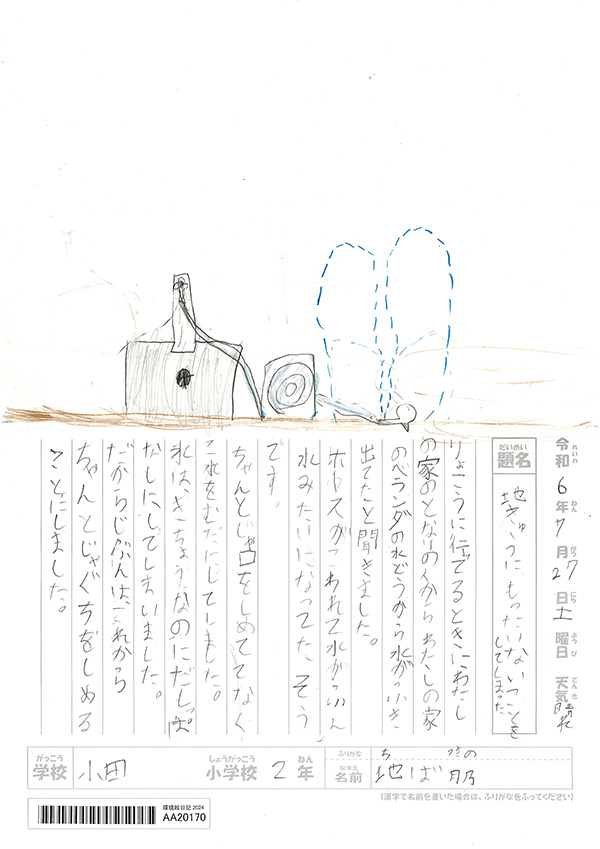 令和6年7月27日土曜日 天気晴れ
れいわ ねん がつ にち ようび てんき
だいめい
題名 地きゅうにもったいないことを
してしまった
りょこうに行ってるときにわたし
の家のとなりの人からわたしの家
のベランダの水どうから水がふき
出てたと聞きました。
ホースがこわれて水がふん
水みたいになってたそう
です。
ちゃんとじゃ口をしめてなく
これをむだにしてしました。
水は、きちょうなのにだしっぱ
なしにしてしまいました。
だからじぶんは、これから
ちゃんとじゃぐちをしめる
ことにしました。
がっこう
学校 小田
しょうがっこう ねん
小学校 2年
ふりがな ち
なまえ
名前 地ば
(漢字で名前を書いた場合は、ふりがなをふってください)
環境絵日記2024
AA20170